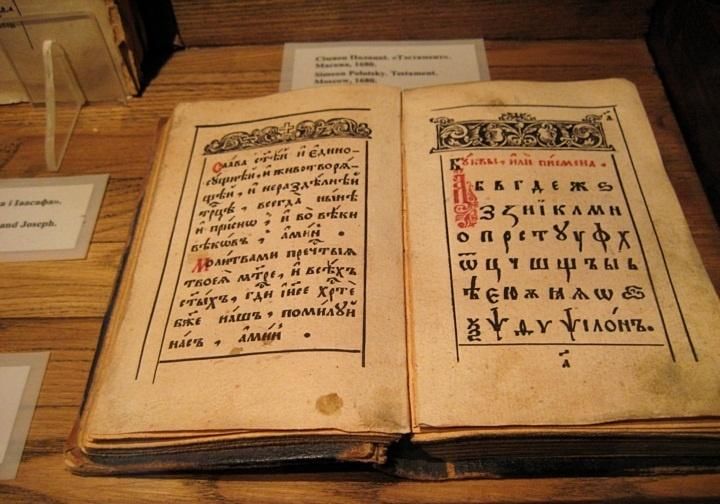 Сімяон Полацкі. «Тэстамент».
Масква, 1680.
Simeon Polotsky. Testament.
Moscow, 1680.
а і Іаасафа».
and Joseph.
Сла́ва ст҃ѣ́й и҆ Є҆дино-
сꙋ́щнѣй и҆ животворѧ́-
щей, и҆ нераздѣ́лнѣй
трⷪ҇цѣ, всегда̀ ны́нѣ
и҆ при́снѡ и҆ во вѣ́ки
вѣкѡ́въ, а҆ми́нь.
Моли́твами преч҇тыѧ
твоеѧ̀ мт҃ре, и҆ всѣ́хъ
ст҃ы́хъ, гд҇и і҆и҃се хр҇те
бж҃е на́шъ, поми́лꙋй
на́съ, а҆ми́нь.
а҃
Бꙋ́квы, и҆лѝ пи́смена.
А Б В Г Д Е Ж Ѕ
З Ꙁ И Ї К Л М Н
О П Р С Т Ꙋ У Ф Х
Ѿ Ц Ч Ш Щ Ъ Ы Ь
Ѣ Є Ю Ѫ Ѩ Ѧ Ѡ
Ѯ Ѱ Д У ѱїло́нъ.
а҃